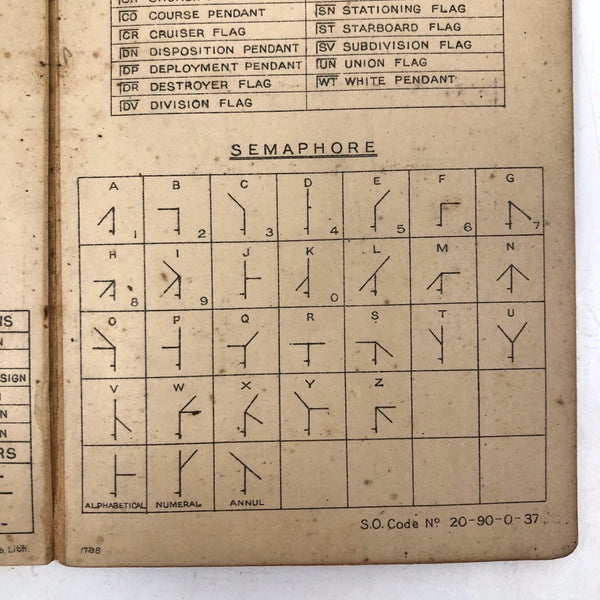 CO COURSE PENDANT
CR CRUISER FLAG
DN DISPOSITION PENDANT
DP DEPLOYMENT PENDANT
DR DESTROYER FLAG
DV DIVISION FLAG
SN STATIONING FLAG
ST STARBOARD FLAG
SV SUBDIVISION FLAG
UN UNION FLAG
WT WHITE PENDANT
SEMAPHORE
A B C D E F G
1 2 3 4 5 6 7
H I J K L M N
8 9 0
O P Q R S T U
V W X Y Z
ALPHABETICAL NUMERAL ANNUL
S.O. Code Nº 20-90-0-37
1798
SIGN